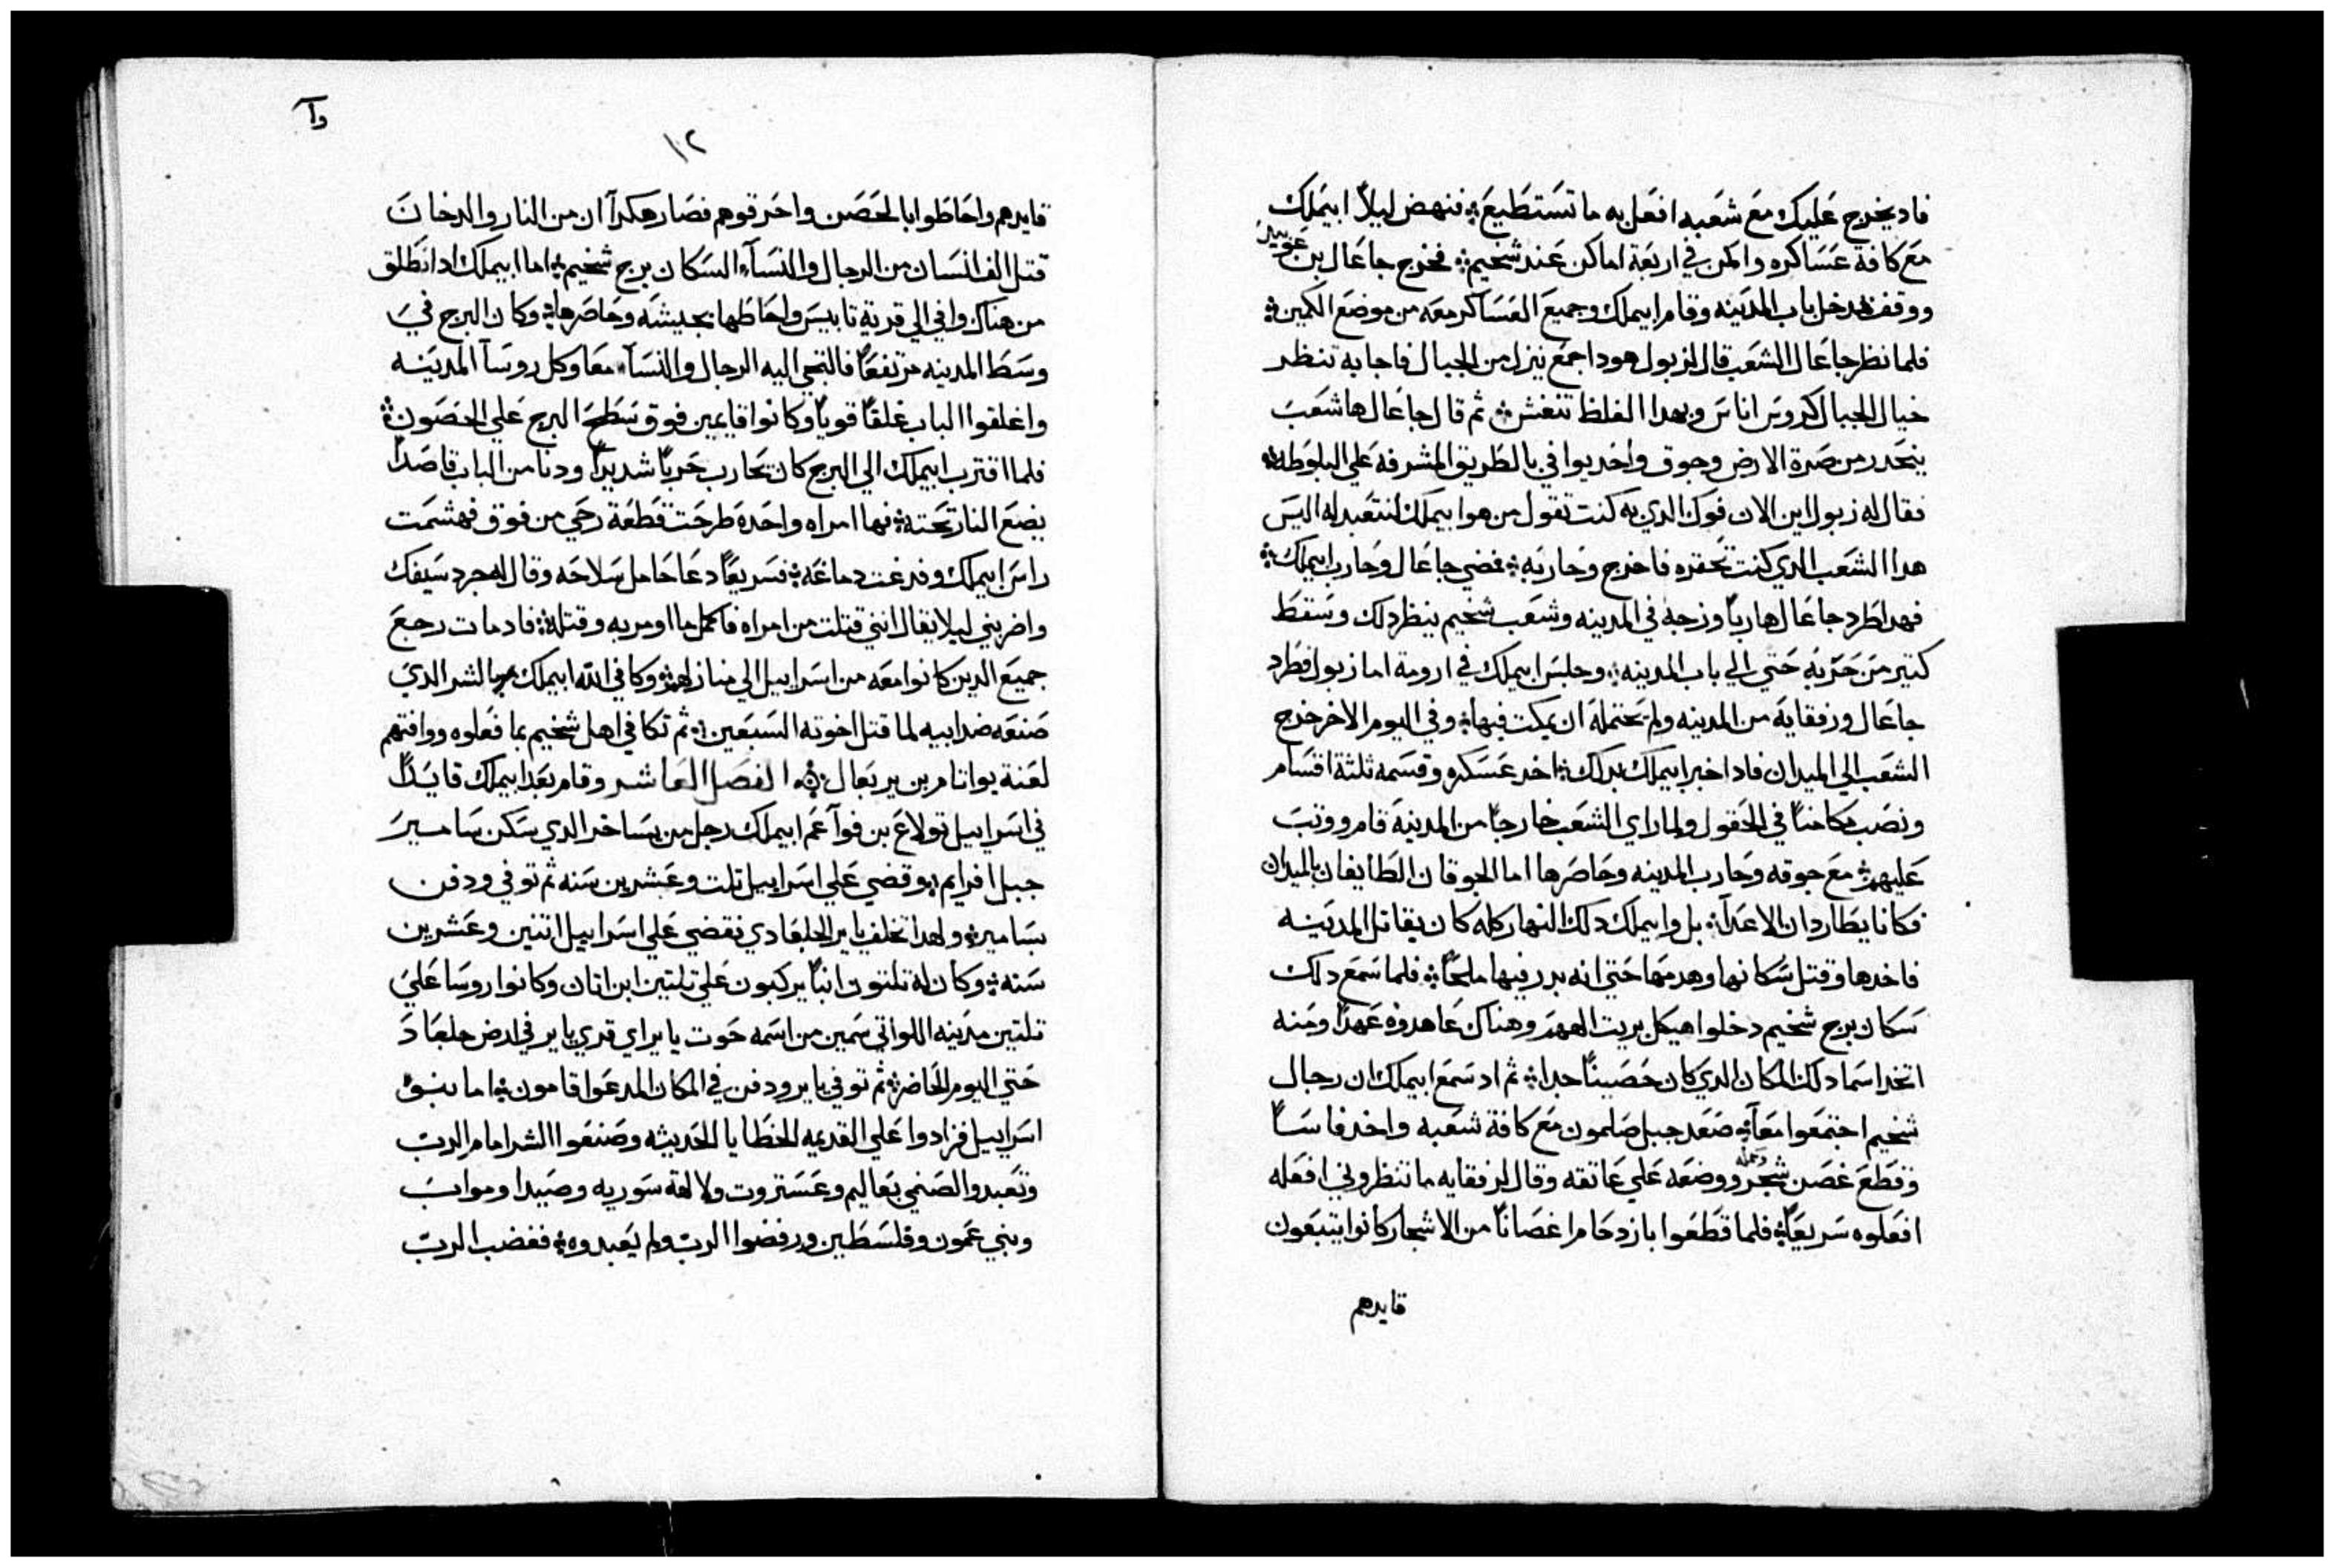 فاد يخرج عليك مع شعبه افعل به ما تستطيع؞ فنهض ليلاً ابيملك
مع كافة عساكره واكمن في اربعة اماكن عند شخيم؞ فخرج جاعال بن عوبيد
ووقف بمدخل باب المدينه وقام ابيملك وجميع العساكر معه من موضع الكمين؞
فلما نظر جاعال الشعب قال لزبول هودا جمع ينزل من الجبال فاجابه تنظر
خيال الجبال كروس اناس وبهدا الغلط تنغش؞ ثم قال جاعال ها شعب
ينحدر من صرة الارض وجوق واحد يوافي بالطريق المشرفه علي البلوطه؞
فقال له زبول اين الان فوك الدي به كنت تقول من هو ابيملك لنتعبد له اليس
هدا الشعب الدي كنت تحقره فاخرج وحاربه؞ فمضي جاعال وحارب ابيملك؞
فهدا طرد جاعال هارباً وزجه في المدينه وشعب شخيم ينظر دلك وسقط
كتير من حزبه حتي الي باب المدينه؞ وجلس ابيملك في ارومة اما زبول فطرد
جاعال ورفقايه من المدينه ولم يحتمله ان يمكت فيها؞ وفي اليوم الاخر خرج
الشعب الي الميدان فاد اخبر ابيملك بدلك؞ اخد عسكره وقسمه ثلثة اقسام
ونصب مكامناً في الحقول ولما راي الشعب خارجاً من المدينة قام ووتب
عليهم؞ مع جوقه وحارب المدينه وحاصرها اما الجوقان الطايفان بالميدان
فكانا يطاردان الاعدآ؞ بل وابيملك دلك النهار كله كان يقاتل المدينه
فاخدها وقتل سكانها وهدمها حتي انه بدر فيها ملحاً؞ فلما سمع دلك
سكان برج شخيم دخلوا هيكل بريت الههم وهناك عاهدوه عهداً ومنه
اتخد اسما دلك المكان الدي كان حصيناً جدا؞ ثم اد سمع ابيملك ان رجال
شخيم اجتمعوا معاً؞ صعد جبل صلمون مع كافة شعبه واخد فاساً
وقطع غصن شجر وحمله ووضعه علي عاتقه وقال لرفقايه ما تنظروني افعله
افعلوه سريعاً؞ فلما قطعوا بازدحام اغصاناً من الاشجار كانوا يتبعون
قايدهم
١٢
قايدهم واحاطوا بالحصن واحرقوهم فصار هكدآ ان من النار والدخان
قتل الف انسان من الرجال والنسآء السكان برج شخيم؞ اما ابيملك اد انطلق
من هناك وافي الي قرية تابيس واحاطها بجيشه وحاصرها؞ وكان البرج في
وسط المدينه مرتفعاً فالتجي اليه الرجال والنسآء معا وكل روسآ المدينه
واغلقوا الباب غلقاً قوياً وكانوا قايمين فوق سطح البرج علي الحصون؞
فلما اقترب ابيملك الي البرج كان يحارب حرباً شديداً ودنا من الباب قاصداً
يضع النار تحته؞ فها امراه واحدة طرحت قطعة رحي من فوق فهشمت
راس ابيملك وفدغت دماغه؞ فسريعاً دعا حامل سلاحه وقال له جرد سيفك
واضربني ليلا يقال انني قتلت من امراه فاكمل ما اومر به وقتله؞ فاد مات رجع
جميع الدين كانوا معه من اسراييل الي منازلهم؞ وكافي الله ابيملك بالشر الدي
صنعه ضد ابيه لما قتل اخوته السبعين؞ ثم تكافي اهل شخيم بما فعلوه ووافتهم
لعنة يواتام بن يربعال؞ الفصل العاشر وقام بعد ابيملك قايداً
في اسراييل تولاع بن فوآ عم ابيملك رجل من يساخر الدي سكن سامير
جبل افرايم؞ وقضي علي اسراييل تلت وعشرين سنه ثم توفي ودفن
بسامير؞ ولهدا تخلف ياير الجلعادي فقضي علي اسراييل اتنين وعشرين
سنه؞ وكان له تلتون ابناً يركبون علي تلتين ابن اتان وكانوا روسا علي
تلتين مدينه اللواتي سمين من اسمه حوت ياير اي قري ياير في ارض جلعاد
حتي اليوم الحاضر؞ ثم توفي ياير ودفن في المكان المدعوا قامون؞ اما بنو
اسراييل فزادوا علي القديمه الخطايا الحديثه وصنعوا الشر امام الرب
وتعبدوا لصنمي بعاليم وعستروت ولالهة سوريه وصيدا ومواب
وبني عمون وفلسطين ورفضوا الرب ولم يعبدوه؞ فغضب الرب